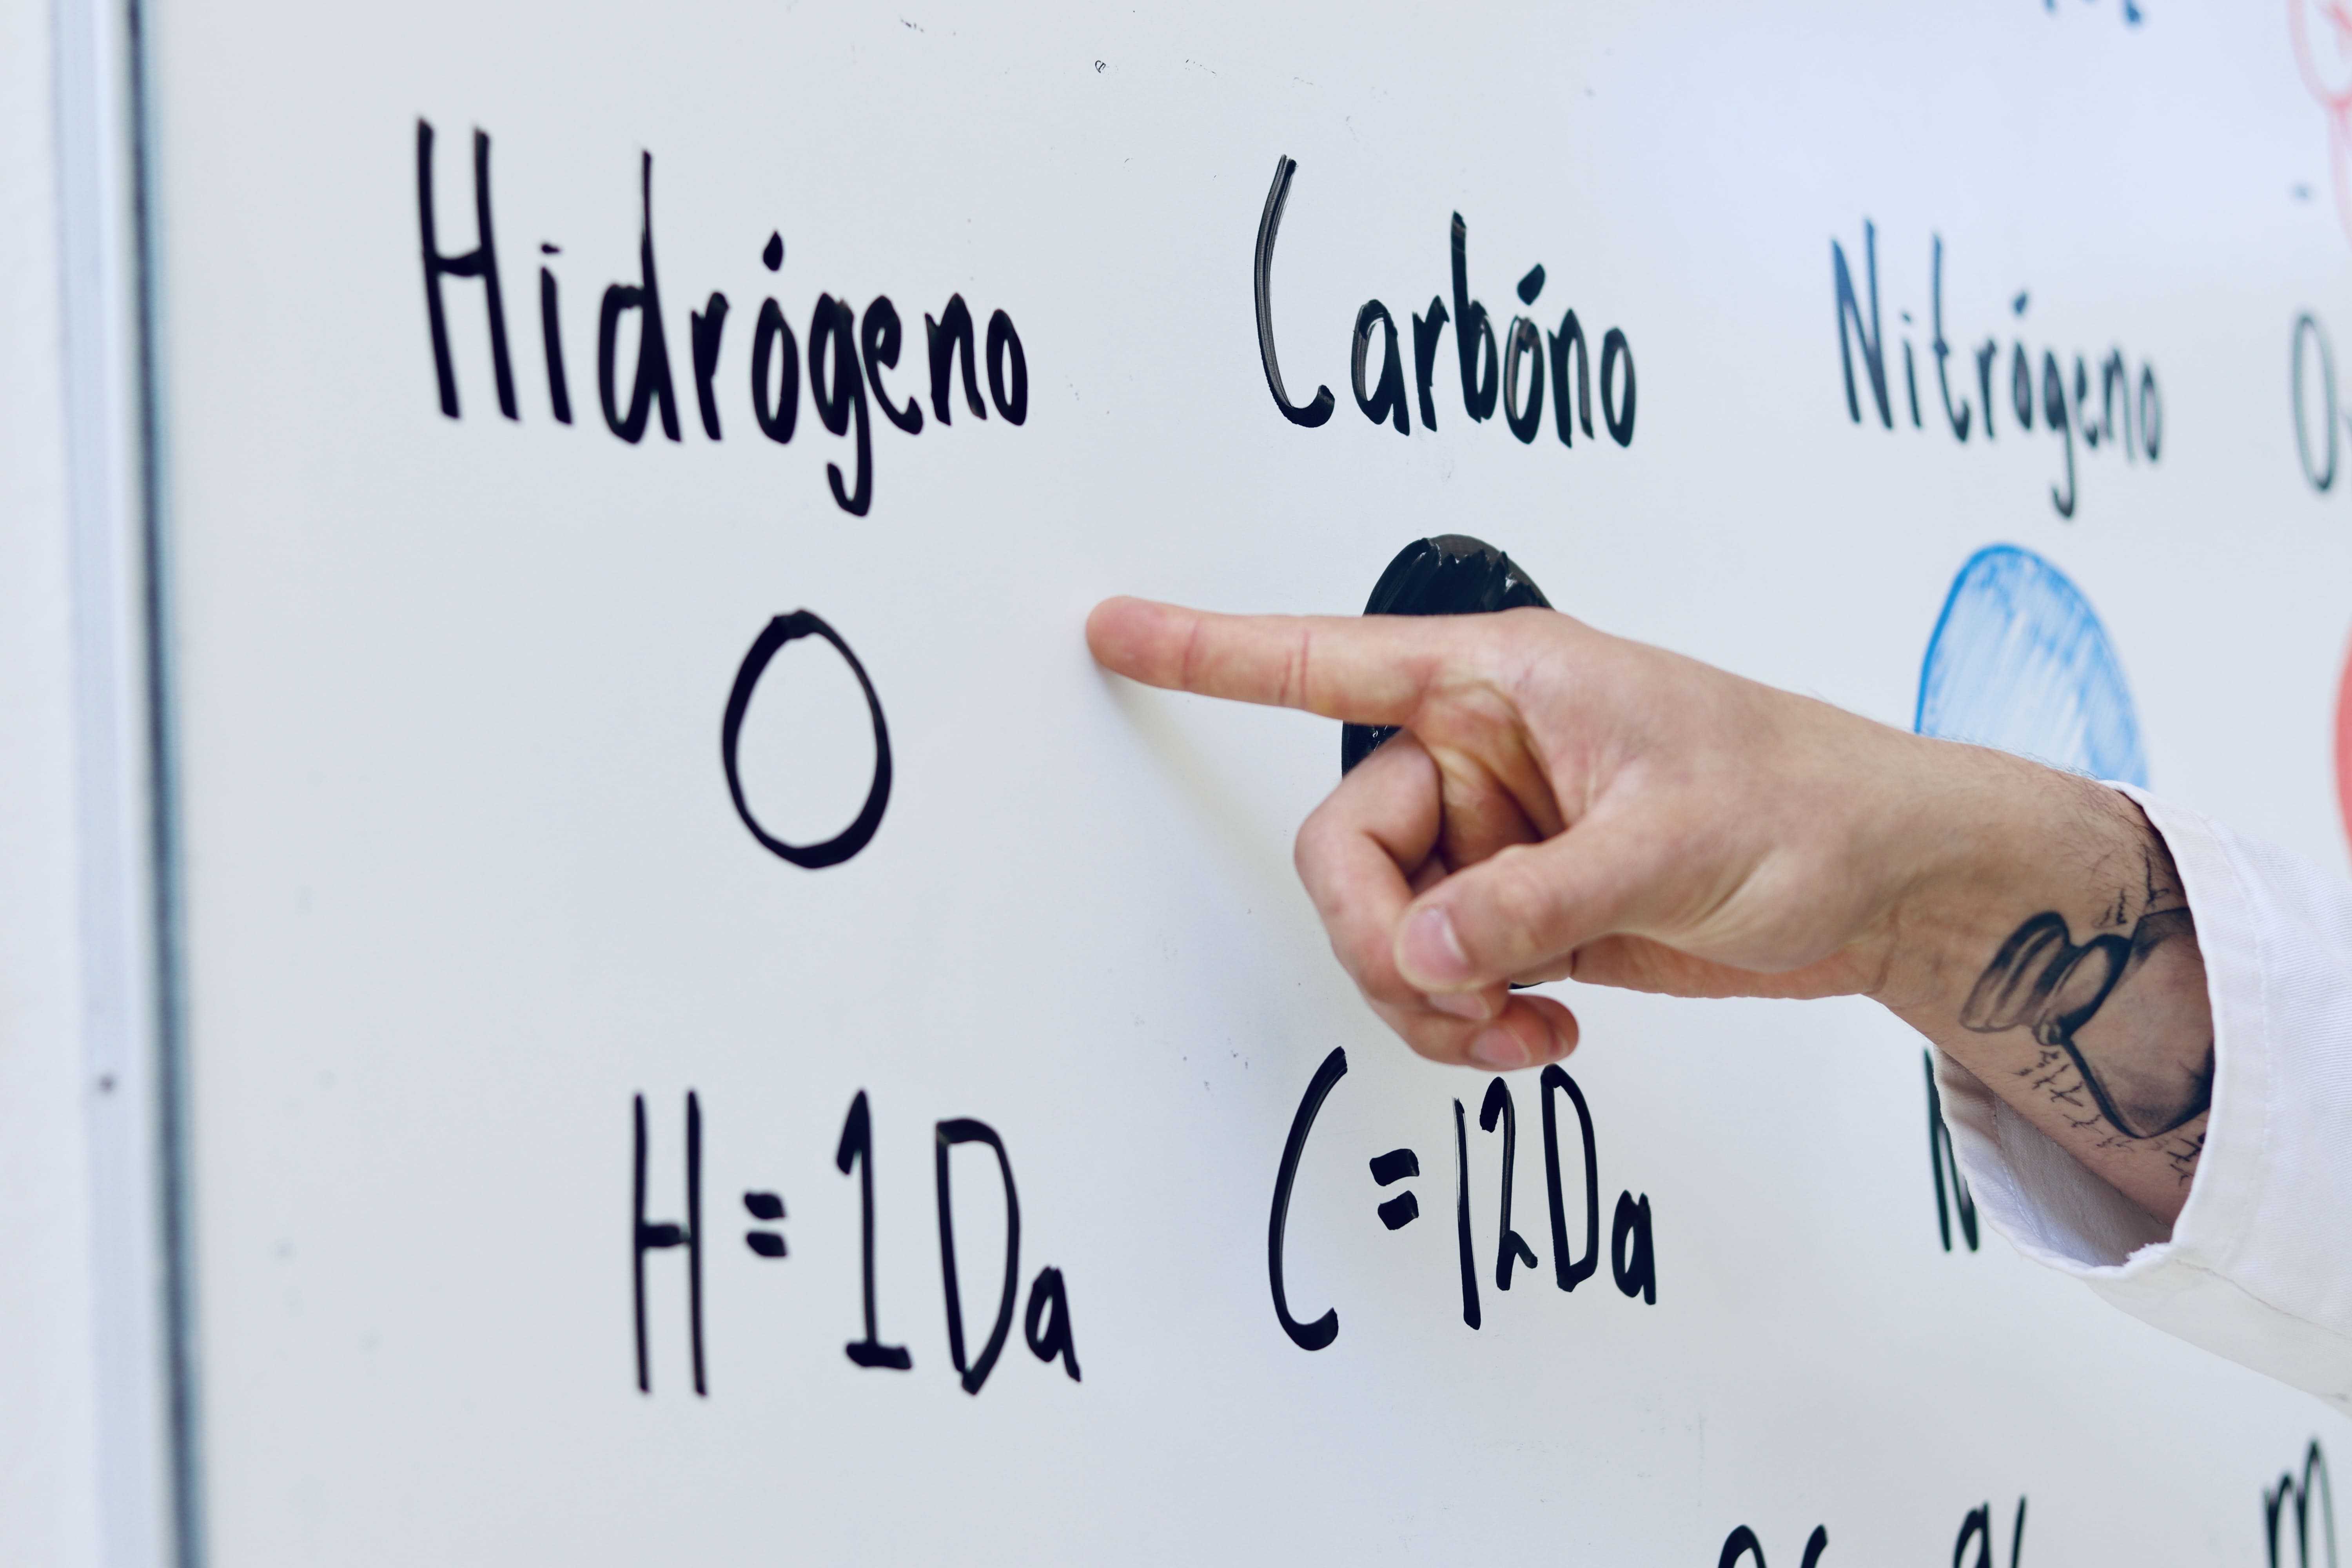 Hidrógeno Carbóno Nitrógeno
H=1Da C=12Da